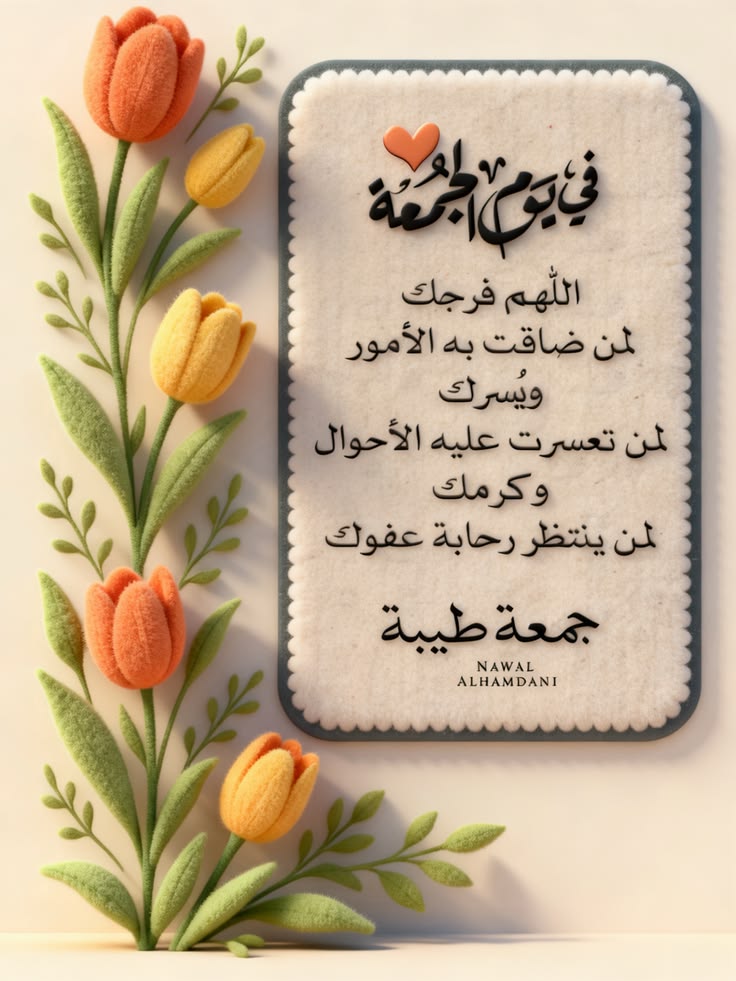 في يَوم الجُمعة
اللّهم فرجك
لمن ضاقت به الأمور
ويُسرك
لمن تعسرت عليه الأحوال
وكرمك
لمن ينتظر رحابة عفوك
جمعة طيبة
NAWAL
ALHAMDANI